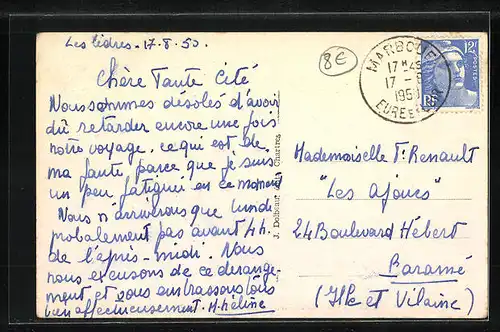 Les Lidres - 17.8.50
8€
MARBOUÉ
17 H 45
17 - 8
1950
EURE ET LOIR
12F
POSTES
Chère Tante Cité
Nous sommes desolés d'avoir
dû retarder encore une fois
notre voyage, ce qui est de
ma faute, parce que je suis
un peu fatigué en ce moment
Nous n'arriverons que lundi
probalement pas avant 4 h.
de l'après-midi. Nous
nous excusons de ce derange-
ment et vous embrassons tous
bien affectueusement. M. héline
Chartres
Mademoiselle Th. Renault
"Les Ajoncs"
24 Boulevard Hébert
Paramé
(Ille et Vilaine)